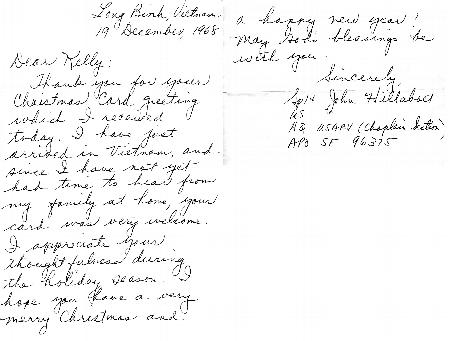 Long Binh, Vietnam
19 December 1968
Dear Kelly:
Thank you for your
Christmas Card greeting
which I received
today. I have just
arrived in Vietnam, and
since I have not yet
had time to hear from
my family at home, your
card was very welcome.
I appreciate your
thoughtfulness during
the holiday season. I
hope you have a very
merry Christmas and
a happy new year!
May Gods blessings be
with you.
Sincerely
Sp/4 John
US
HQ USARV (Chaplain Section)
APO SF 96375